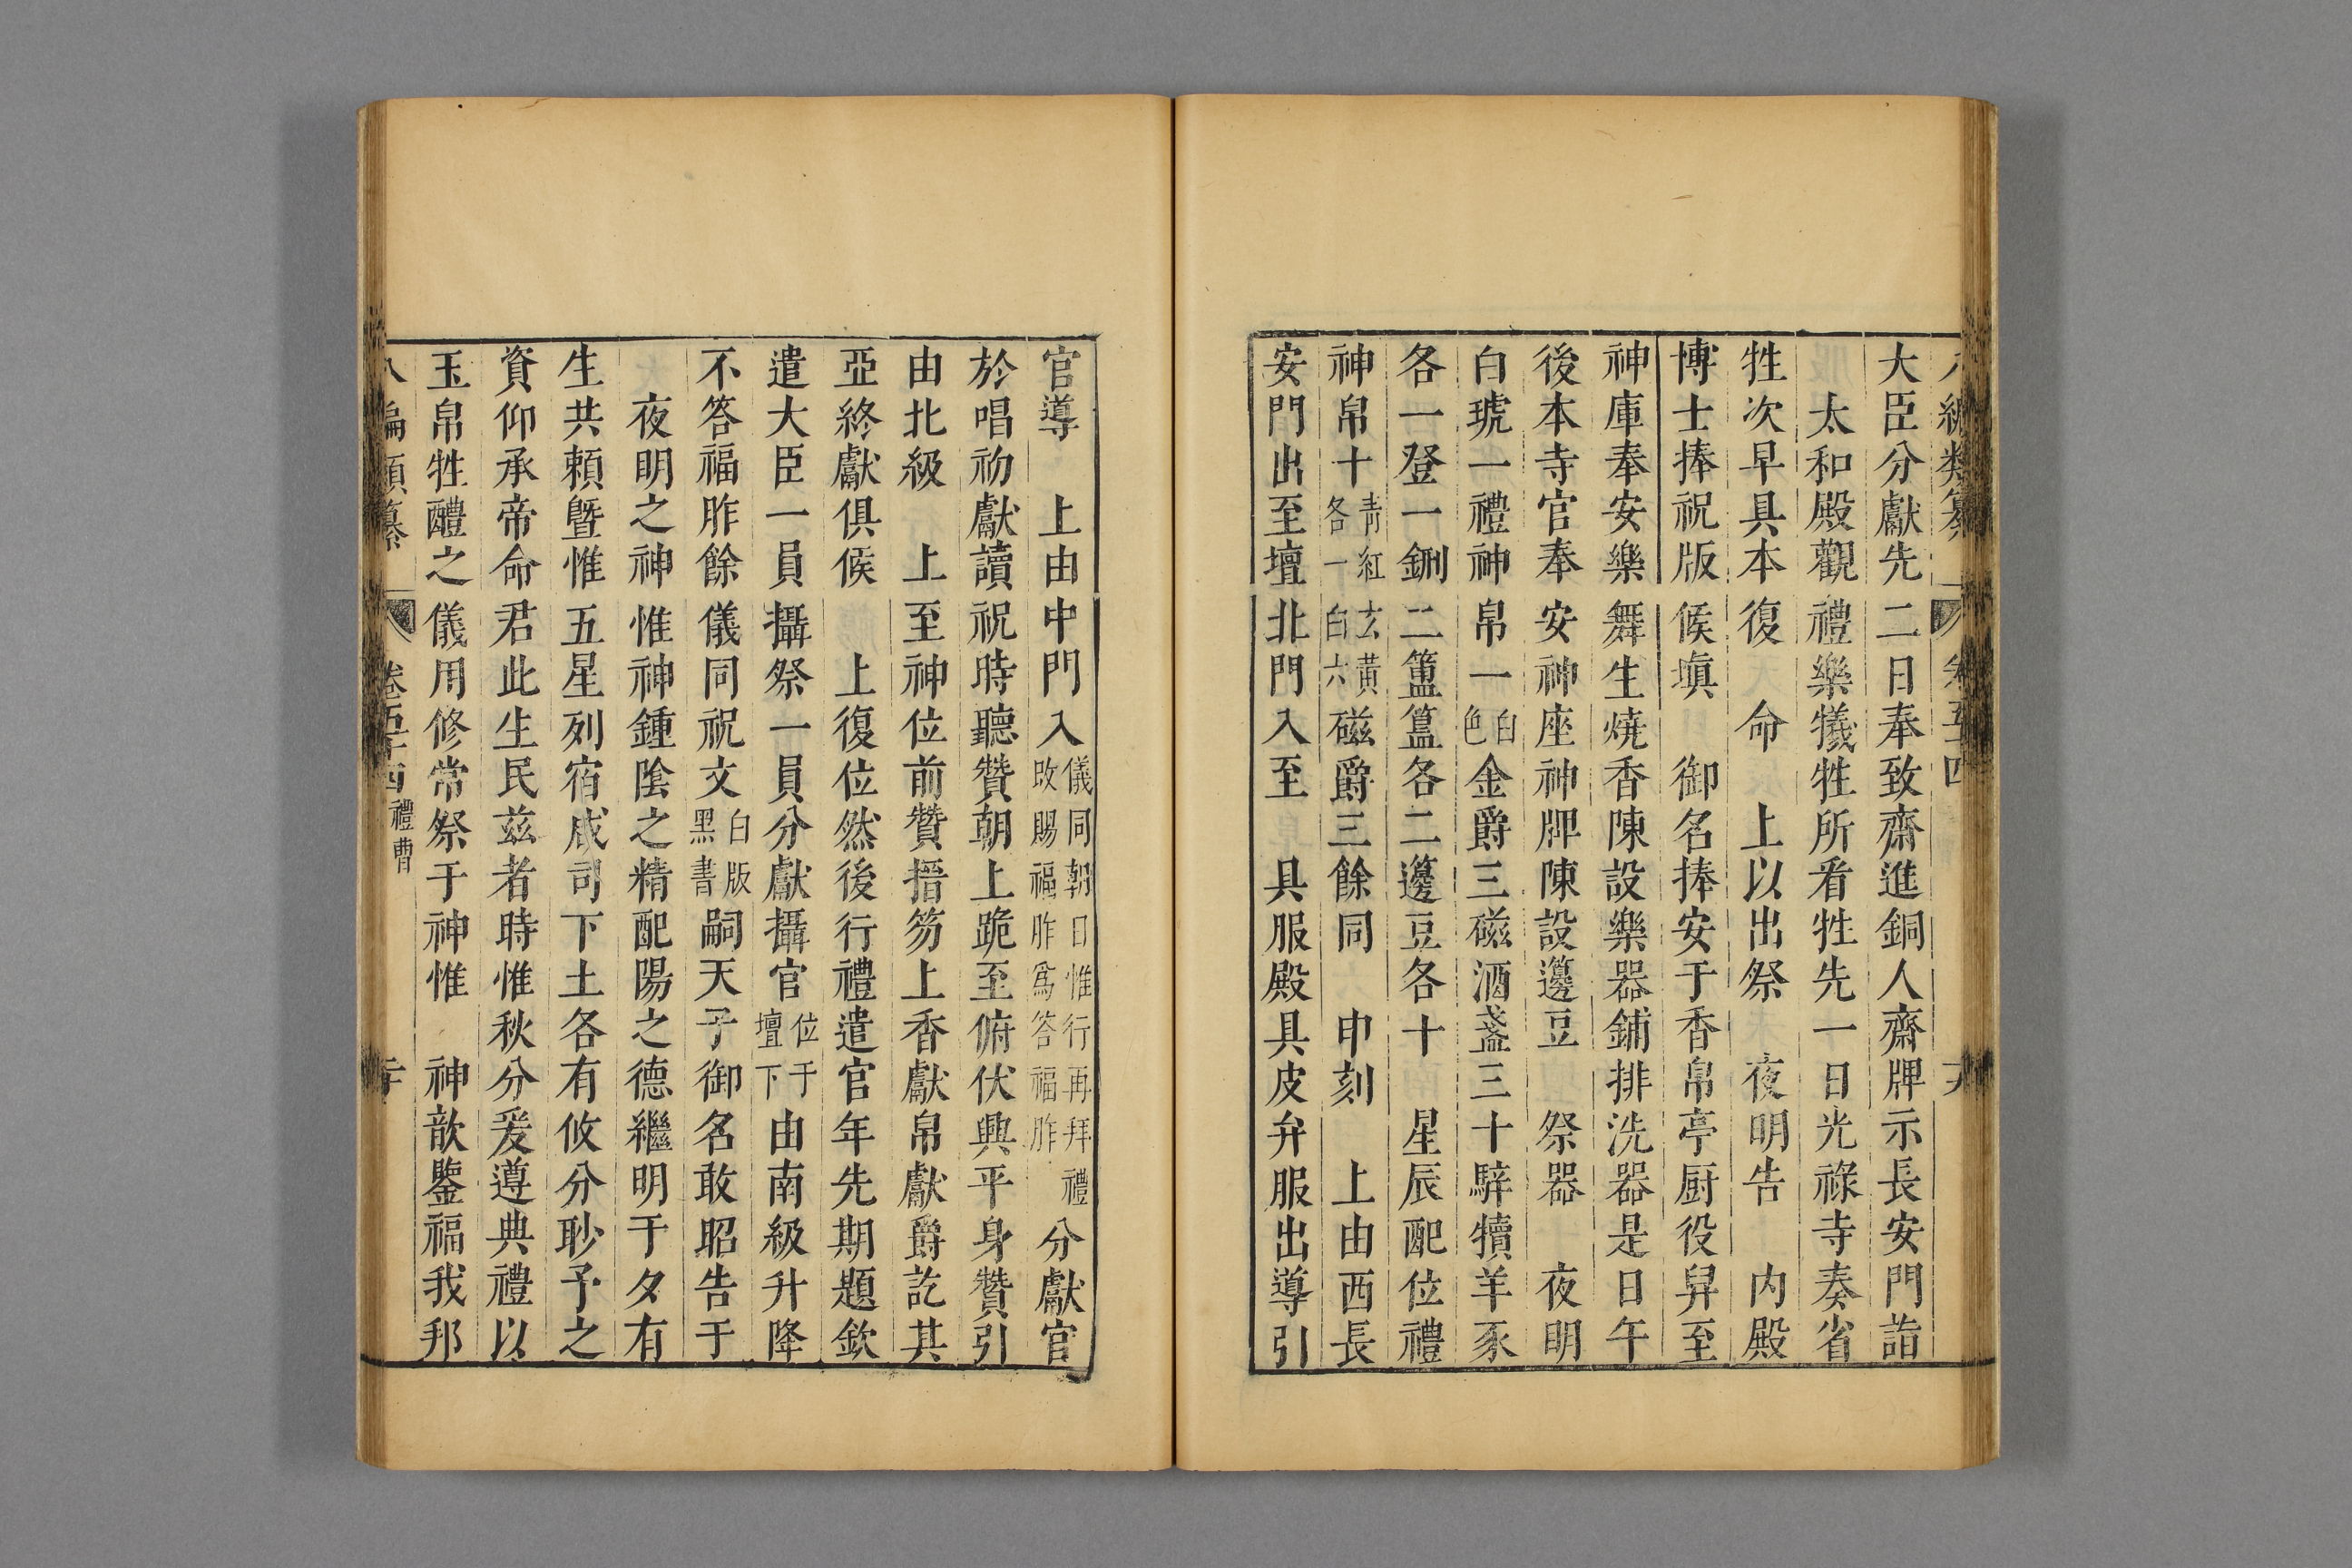 大臣分獻先二日奉致齋進銅人齋牌示長安門詣
太和殿觀禮樂犧牲所看牲先一日光祿寺奏省
牲次早具本復　命　上以出祭　夜明告　内殿
博士捧祝版候塡　御名捧安于香帛亭厨役舁至
神庫奉安樂舞生燒香陳設樂器鋪排洗器是日午
後本寺官奉安神座神牌陳設籩豆　祭器　夜明
白琥一禮神帛一白色金爵三磁酒盞三十騂犢羊豕
各一登一鉶二簠簋各二籩豆各十　星辰配位禮
神帛十青紅各一玄黃白六磁爵三餘同　申刻　上由西長
安門出至壇北門入至　具服殿具皮弁服出導引
官導　上由中門入儀同朝日惟行再拜禮改賜福胙爲答福胙分獻官
於唱初獻讀祝時聽贊朝上跪至俯伏興平身贊引
由北級　上至神位前贊搢笏上香獻帛獻爵訖其
亞終獻俱候　上復位然後行禮遣官年先期題欽
遣大臣一員攝祭一員分獻攝官位于壇下由南級升降
不答福胙餘儀同祝文白版黑書嗣天子御名敢昭告于
夜明之神惟神鍾陰之精配陽之德繼明于夕有
生共賴曁惟五星列宿咸司下土各有攸分眇予之
資仰承帝命君此生民茲者時惟秋分爰遵典禮以
玉帛牲醴之儀用修常祭于神惟　神歆鑒福我邦
八編類纂　卷五十四　禮曹　二十